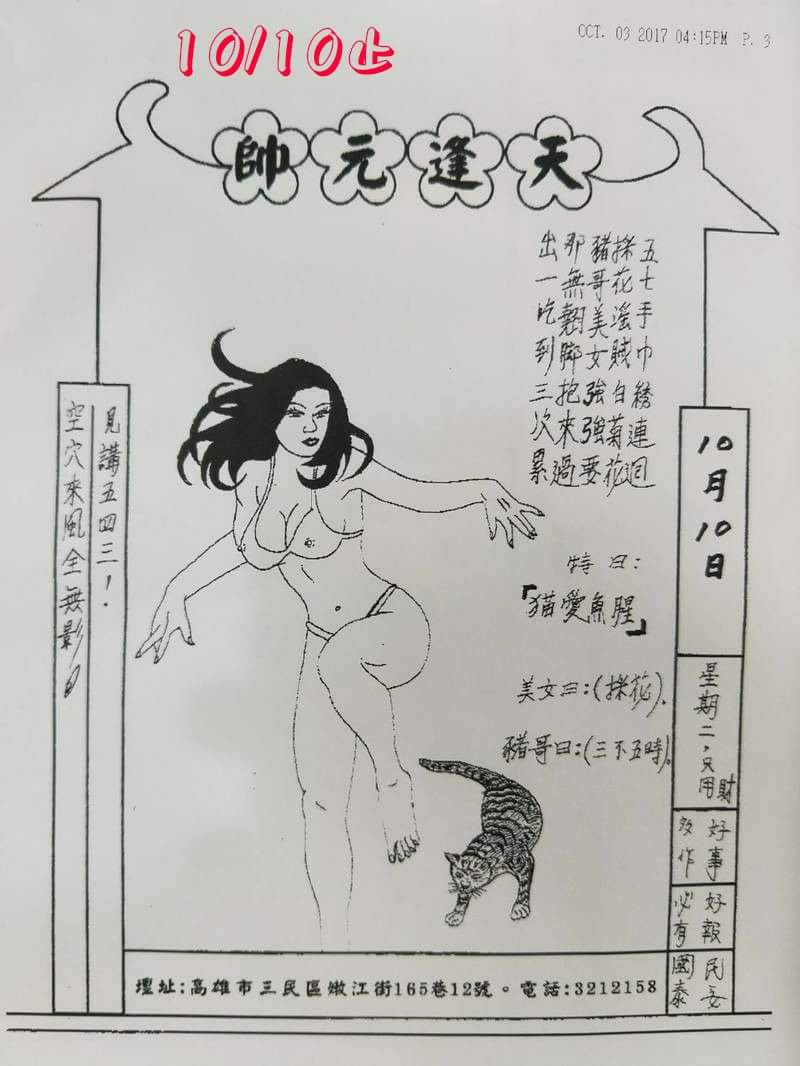 OCT. 03 2017 04:15PM P. 3
10/10止
天逢元帥
五七手巾綉連迴
採花滛賊白菊花
豬哥美女強強要
那無翹脚抱來過
出一吃到三次累
特曰：
「猫愛魚腥」
美女曰：(採花)。
豬哥曰：(三不五時)。
10月10日
星期二，只用財
好事
多作
好報
必有
民安
國泰
見講五四三！
空穴來風全無影
壇址：高雄市三民區嫩江街165巷12號。電話：3212158